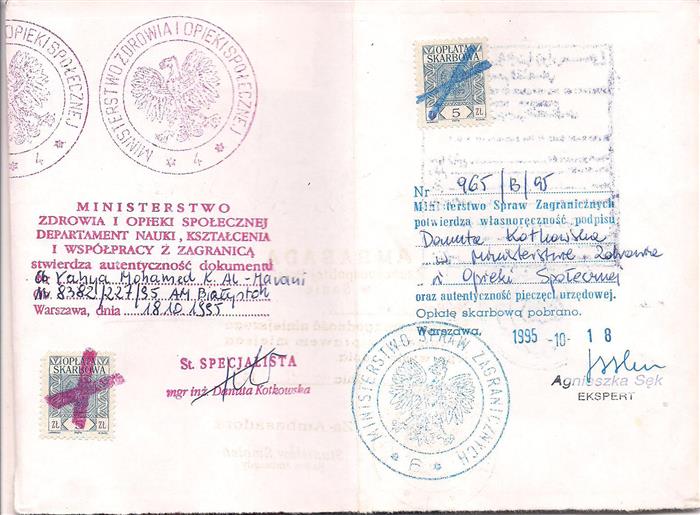 OPIEKI SPOŁECZNEJ
4
MINISTERSTWO ZDROWIA I OPIEKI SPOŁECZNEJ
4
MINISTERSTWO
ZDROWIA I OPIEKI SPOŁECZNEJ
DEPARTAMENT NAUKI, KSZTAŁCENIA
I WSPÓŁPRACY Z ZAGRANICĄ
stwierdza autentyczność dokumentu
Yahya Mohamed K. Al-Havani
Nr 8382/227/95 AM Białystok
Warszawa, dnia 18.10.1995
OPŁATA
SKARBOWA
ZŁ ZŁ
St. SPECJALISTA
mgr inż. Danuta Kotkowska
OPŁATA
SKARBOWA
5 ZŁ
Nr 965/B/95
Ministerstwo Spraw Zagranicznych
potwierdza własnoręczność podpisu
Danuta Kotkowska
w Ministerstwie Zdrowia
i Opieki Społecznej
oraz autentyczność pieczęci urzędowej.
Opłatę skarbową pobrano.
Warszawa, 1995 -10- 18
Agnieszka Sęk
EKSPERT
MINISTERSTWO SPRAW ZAGRANICZNYCH
6